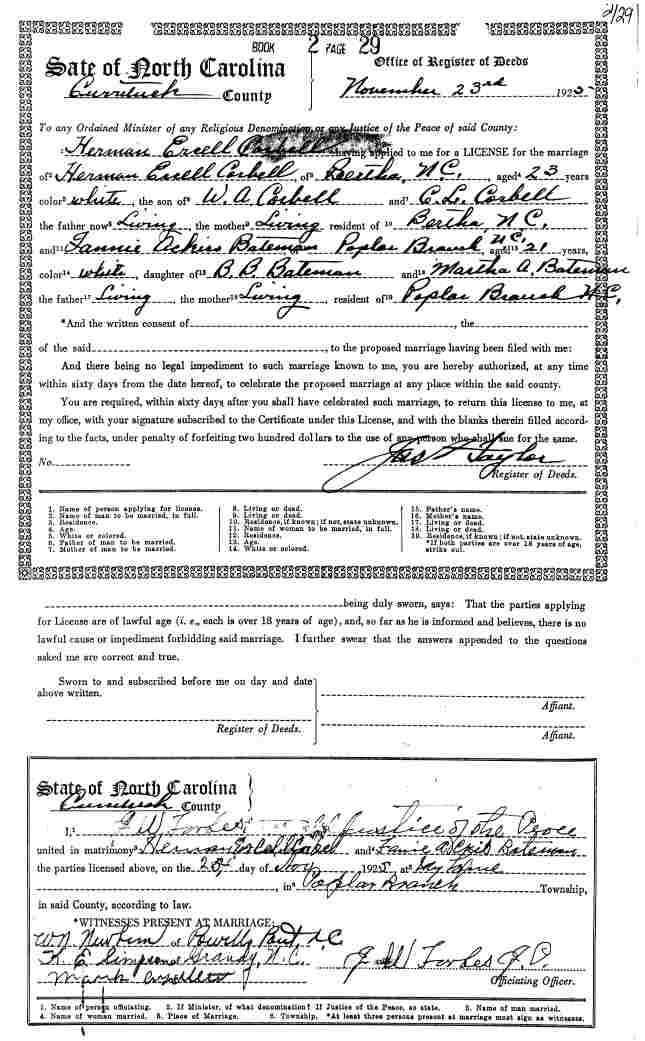 2/29
BOOK 2 PAGE 29
Sate of North Carolina
Office of Register of Deeds
Currituck County
November 23rd 1925
To any Ordained Minister of any Religious Denomination, or any Justice of the Peace of said County:
Herman Excell Corbell having applied to me for a LICENSE for the marriage
of² Herman Excell Corbell, of³ Bertha, N.C., aged⁴ 23 years
color⁵ white, the son of⁶ W. A. Corbell and⁷ C. L. Corbell
the father now⁸ Living, the mother⁹ Living resident of ¹⁰ Bertha, N.C.
and¹¹ Fannie Ackiss Bateman Poplar Branch N.C. aged¹³ 21 years,
color¹⁴ white, daughter of¹⁵ B. B. Bateman and¹⁶ Martha A. Bateman
the father¹⁷ Living, the mother¹⁸ Living, resident of¹⁹ Poplar Branch N.C.
*And the written consent of, the
of the said, to the proposed marriage having been filed with me:
And there being no legal impediment to such marriage known to me, you are hereby authorized, at any time
within sixty days from the date hereof, to celebrate the proposed marriage at any place within the said county.
You are required, within sixty days after you shall have celebrated such marriage, to return this license to me, at
my office, with your signature subscribed to the Certificate under this License, and with the blanks therein filled accord-
ing to the facts, under penalty of forfeiting two hundred dollars to the use of any person who shall sue for the same.
No.
Taylor
Register of Deeds.
1. Name of person applying for license.
2. Name of man to be married, in full.
3. Residence.
4. Age.
5. White or colored.
6. Father of man to be married.
7. Mother of man to be married.
8. Living or dead.
9. Living or dead.
10. Residence, if known; if not, state unknown.
11. Name of woman to be married, in full.
12. Residence.
13. Age.
14. White or colored.
15. Father's name.
16. Mother's name.
17. Living or dead.
18. Living or dead.
19. Residence, if known; if not, state unknown.
*If both parties are over 18 years of age,
strike out.
being duly sworn, says: That the parties applying
for License are of lawful age (i. e., each is over 18 years of age), and, so far as he is informed and believes, there is no
lawful cause or impediment forbidding said marriage. I further swear that the answers appended to the questions
asked me are correct and true.
Sworn to and subscribed before me on day and date
above written.
Affiant.
Register of Deeds.
Affiant.
State of North Carolina
Currituck County
I,¹ Forbes Justice of the Peace
united in matrimony³ Herman Corbel and⁴ Bateman
the parties licensed above, on the day of Nov 1925, at⁵
, in⁶ Poplar Branch Township,
in said County, according to law.
*WITNESSES PRESENT AT MARRIAGE:
W. N. Newbern of Powells Point, N.C.
K. E. Simpson Grandy, N.C.
Mark
Forbes J.P.
Officiating Officer.
1. Name of person officiating. 2. If Minister, of what denomination? If Justice of the Peace, so state. 3. Name of man married.
4. Name of woman married. 5. Place of Marriage. 6. Township. *At least three persons present at marriage must sign as witnesses.